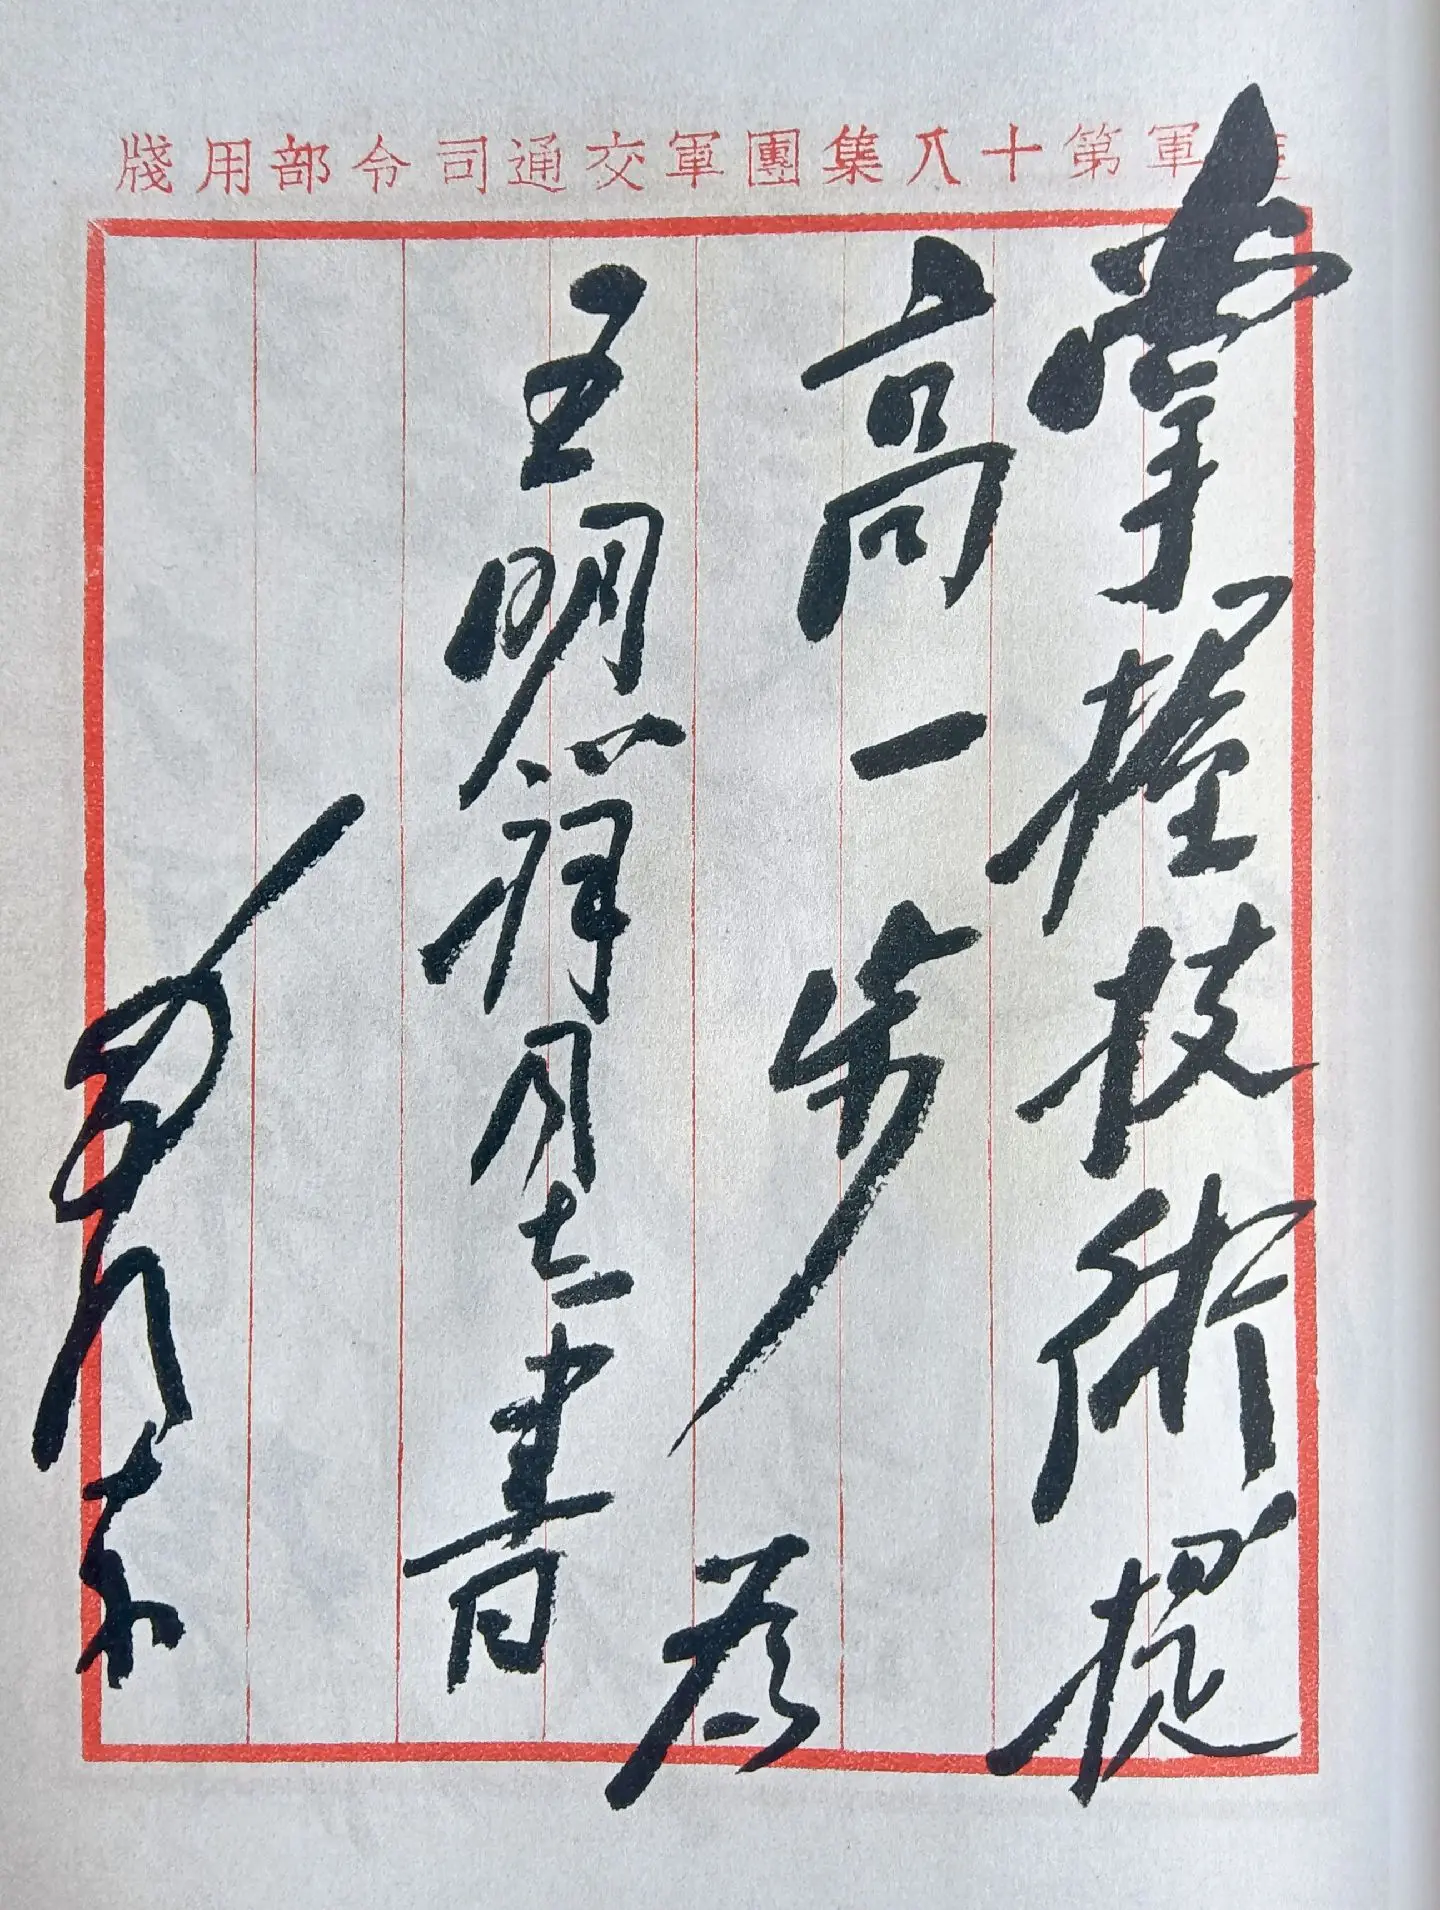 軍第十八集團軍交通司令部用牋
掌握技術提
高一步 為
王明祥同志書
毛澤東